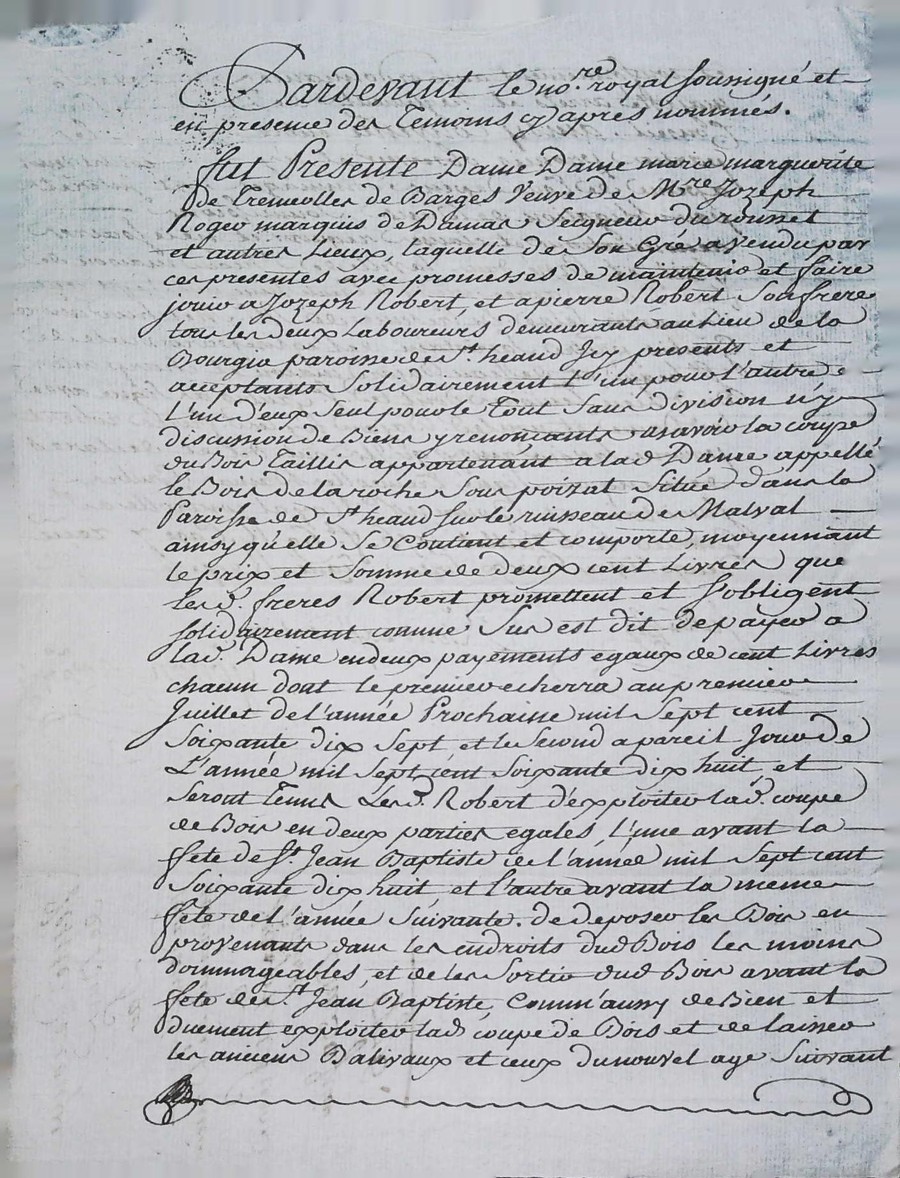 Pardevant le no.re royal soussigné et
en presence des Temoins cy apres nommés.
fut Presente Dame Dame marie marguerite
de Tremeolles de Barges Veuve de Mre Jozeph
Roger marquis de Damas Seigneur du rousset
et autres Lieux, laquelle de son Gré a vendu par
ces presentes avec promesses de maintenir et faire
jouir a Jozeph Robert, et a pierre Robert Son frere
tous les deux Laboureurs demeurants au lieu de la
Bourgia paroisse de St. heand Jcy presents et
acceptants Solidairement l'un pour l'autre
l'un d'eux seul pour le Tout Sans division n'y
discussion de Biens y renoncants asavoir la coupe
du Bois Taillis appartenant a lad Dame appellé
le Bois de la roche Sous poizat Situé dans la
Paroisse de St heand sur le ruisseau de Malval
ainsy qu'elle se Contient et comporte, moyennant
le prix et Somme de deux cent Livres que
lesd. freres Robert promettent et s'obligent
solidairement comme Sus est dit de payer a
lad. Dame en deux payements egaux de cent Livres
chacun dont le premier echerra au premier
Juillet de l'année Prochaine mil Sept cent
Soixante dix Sept et le Second a pareil Jour de
L'année mil Sept cent Soixante dix huit et
Seront Tenus Lesd. Robert d'exploiter lad. coupe
de Bois en deux parties egales, l'une avant la
fete de St Jean Baptiste de l'année mil Sept cent
Soixante dix huit, et l'autre avant la meme
fete de l'année Suivante. de deposer les Bois en
provenants dans les endroits dud Bois les moins
dommageables, et de les Sortir dud Bois avant la
fete de St. Jean Baptiste, Comm'aussy de Bien et
duement exploiter lad coupe de Bois et de laisser
les anciens Balivaux et ceux du nouvel age Suivant